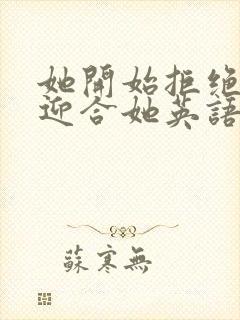 她開始拒绝
迎合她英語
蘇寒無